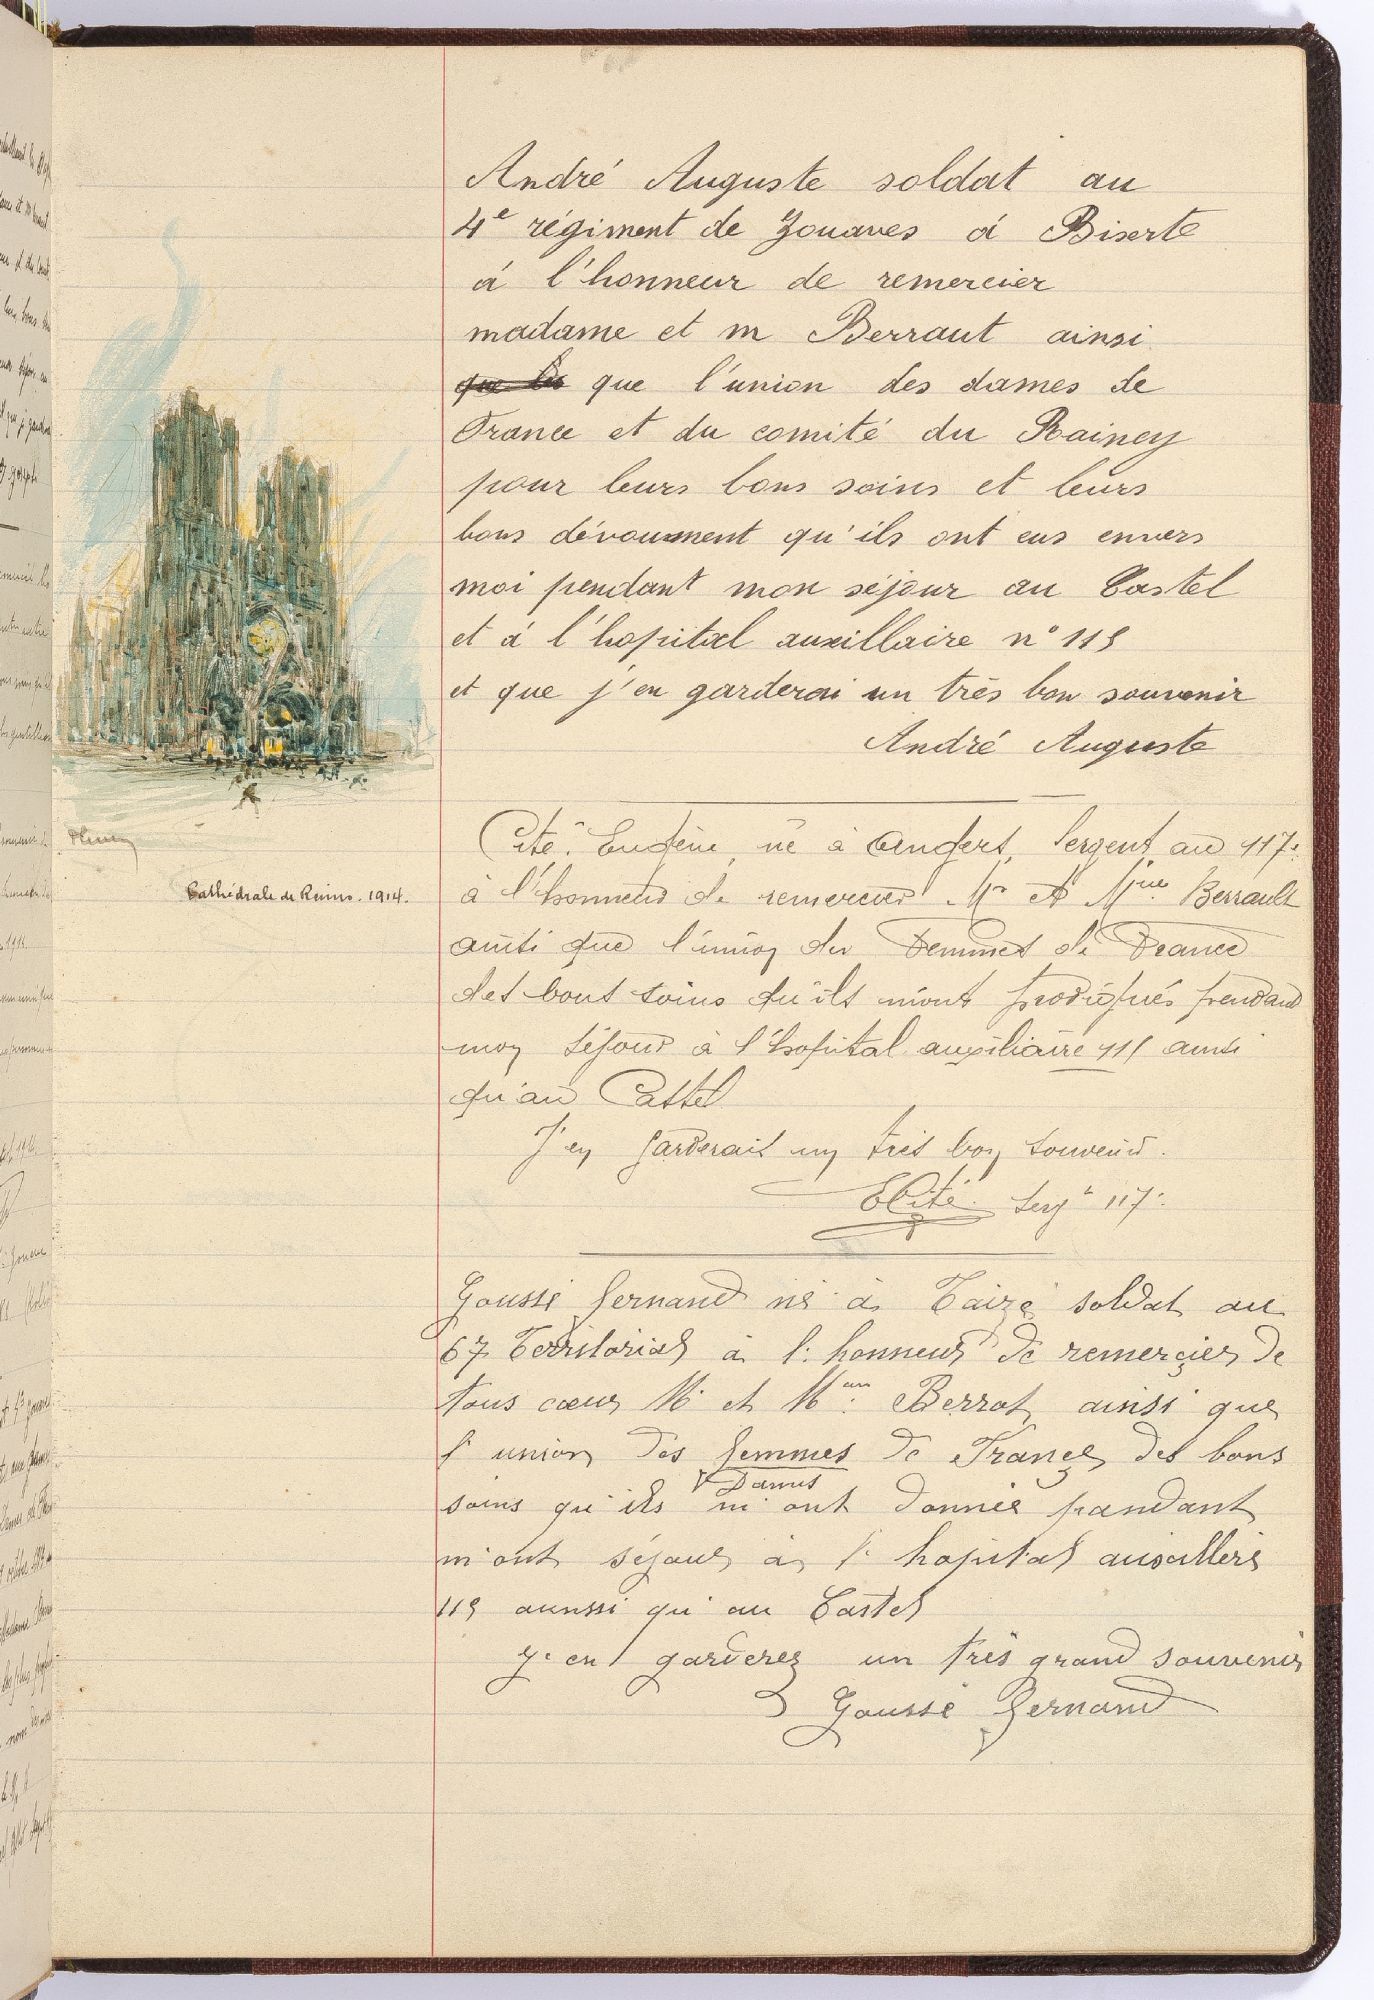 André Auguste soldat au
4e régiment de Zouaves á Biserte
á l'honneur de remercier
madame et m Berraut ainsi
que les que l'union des dames de
France et du comité du Rainey
pour leurs bons soins et leurs
bons dévoument qu'ils ont eus envers
moi pendant mon séjour au Castel
et á l'hopital auxillaire n° 115
et que j'en garderai un très bon souvenir
André Auguste
Cité Eugène, né à Angers, Sergent au 117e
à l'honneur de remercier Mr et Mme Berrault
ainsi que l'union des Femmes de France
des bons soins qu'ils m'ont prodigués pendant
mon séjour à l'hopital auxiliaire 115 ainsi
qu'au Castel
J'en garderais un très bon souvenir.
ECité Sergt 117e
Cathédrale de Reims. 1914.
Goussé Fernand né à Taizé soldat au
67 Territorial à l'honneur de remercier de
tous cœur M. et Mme Berrot ainsi que
l'union des femmes de France des bons
Dames
soins qu'ils m'ont donnée pandant
m'ont séjour à l'hopital auxillere
115 aunssi qu'au Castel
J'en garderez un très grand souvenir
Goussé Fernand